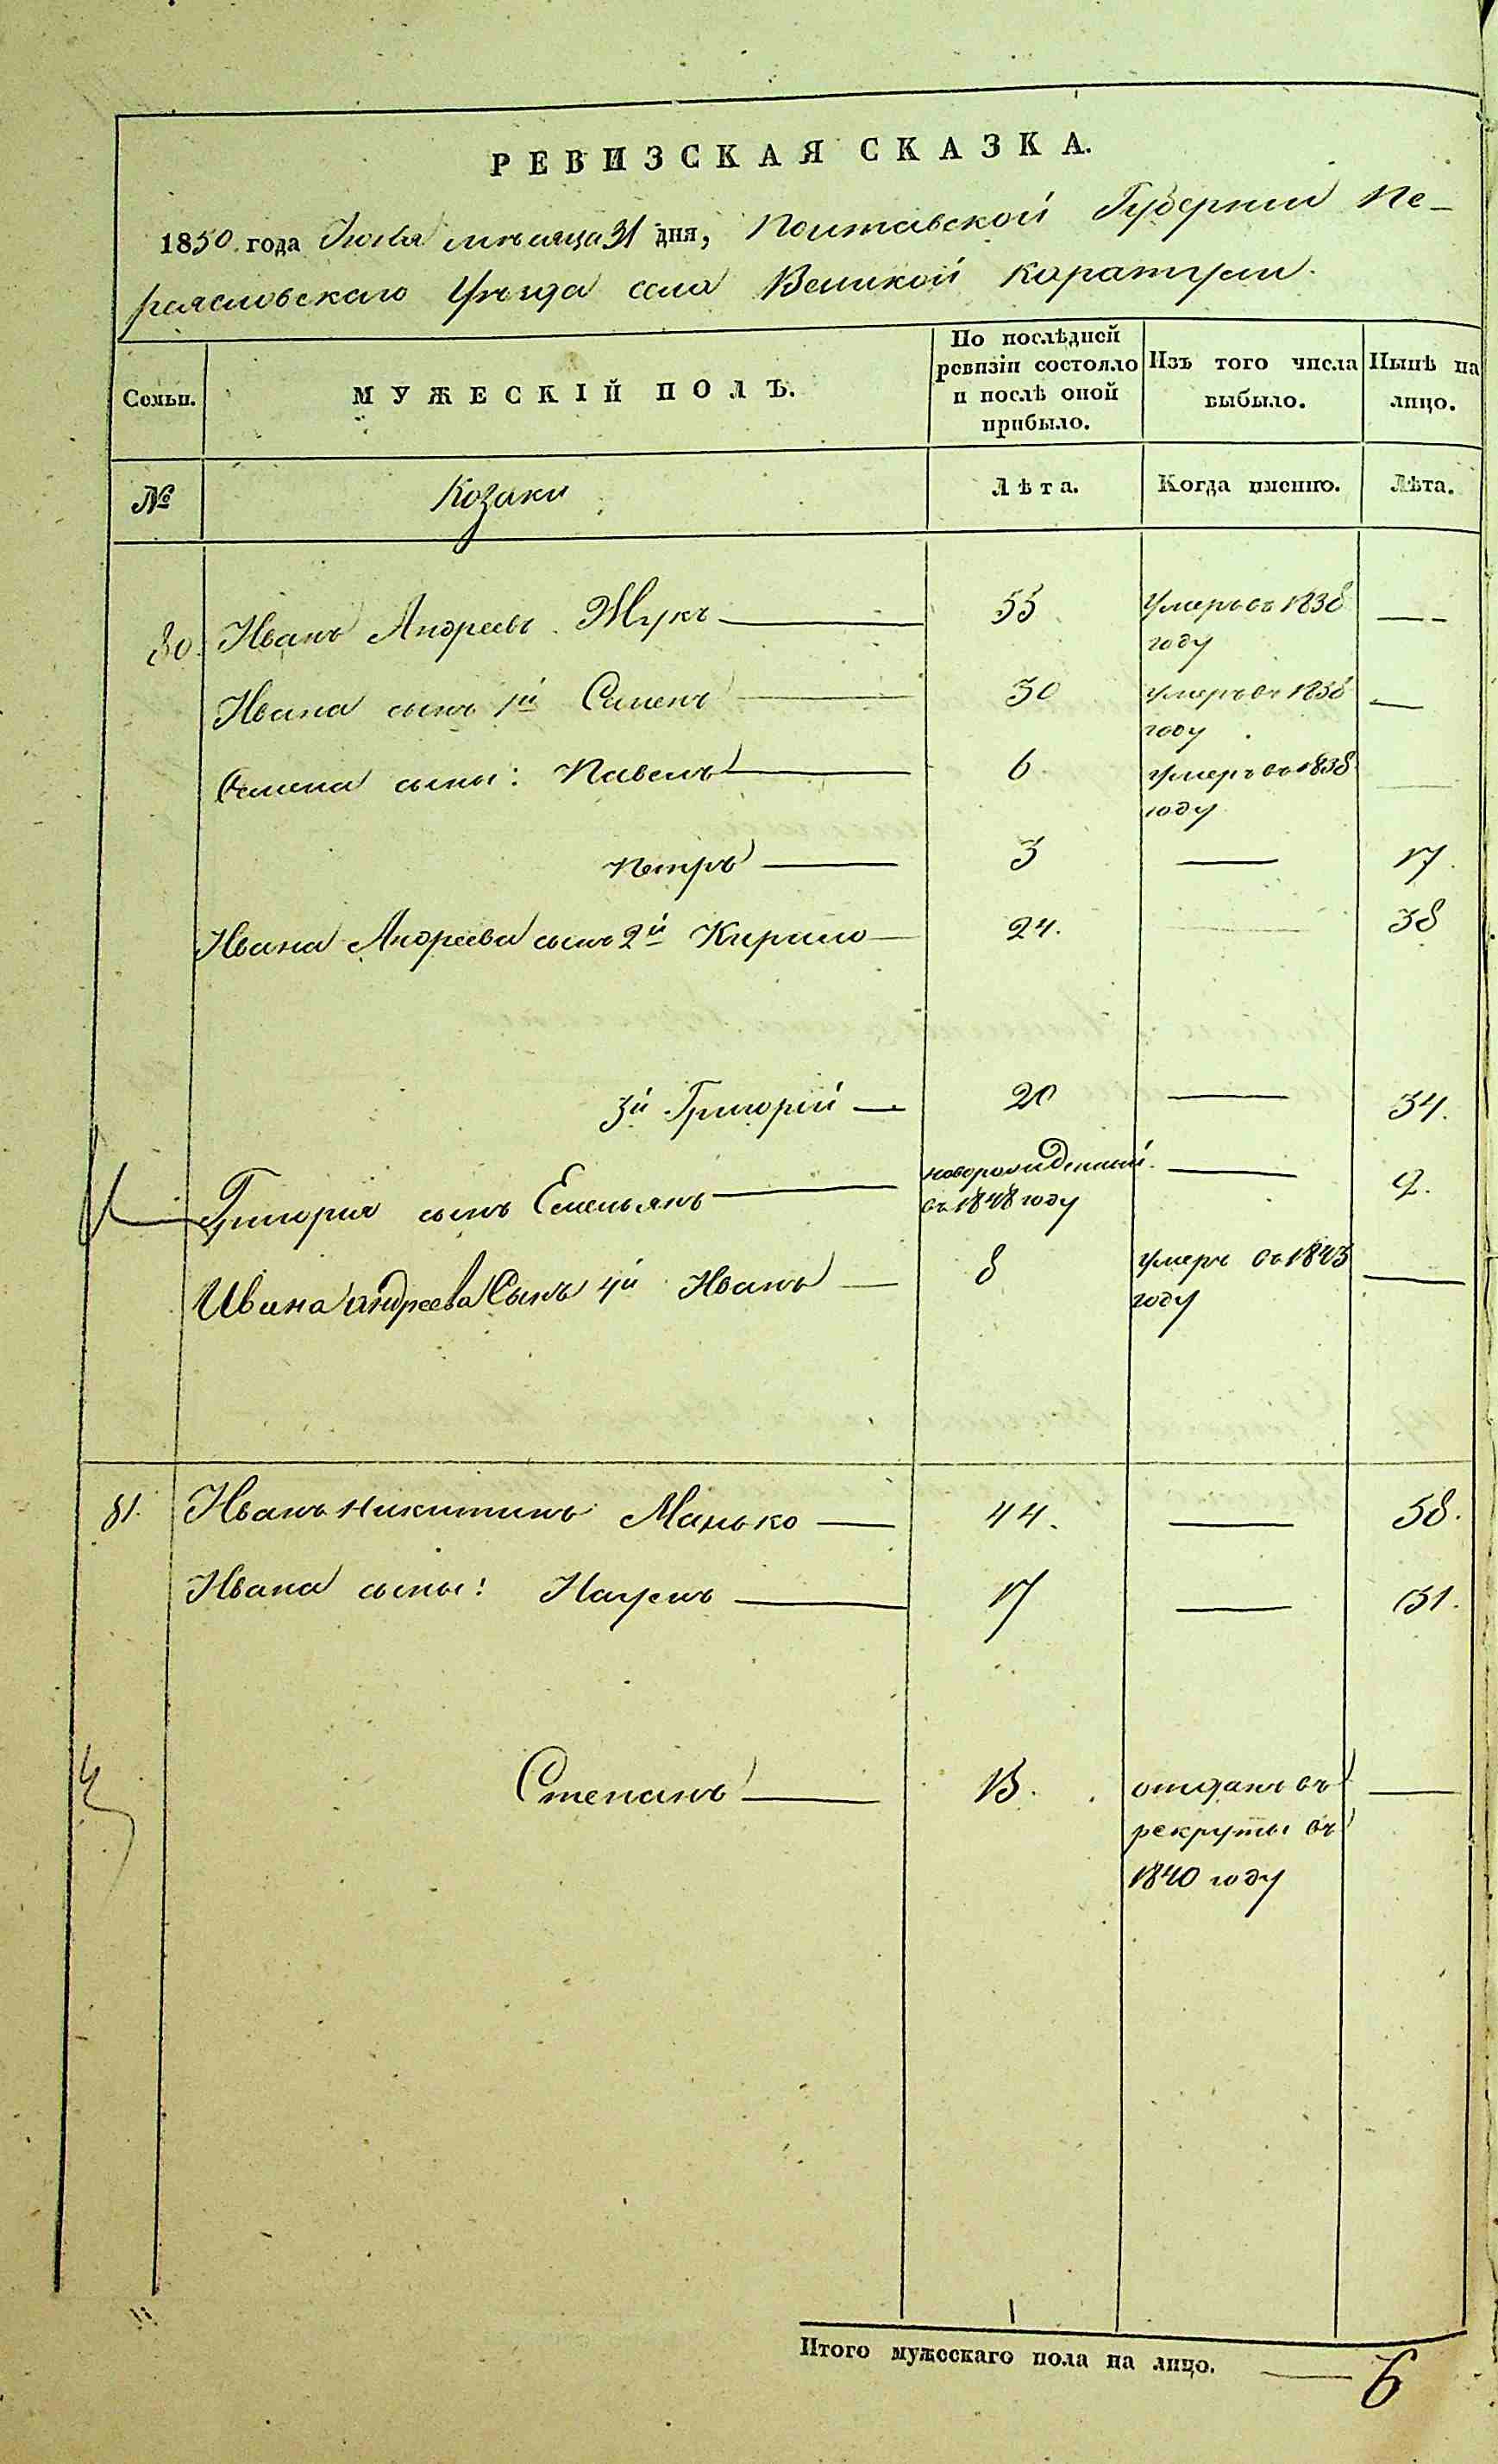 РЕВИЗСКАЯ СКАЗКА.
1850 года Июля мѣсяца 31 дня, Полтавской Губерніи Пе-
реясловскаго Уѣзда села Великой Каратули.
Семьи. МУЖЕСКІЙ ПОЛЪ. По послѣдней ревизіи состояло и послѣ оной прибыло. Изъ того числа выбыло. Нынѣ на лицо.
№ Козаки Лѣта. Когда имянно. Лѣта.
80. Иванъ Андреевъ Жукъ — 55 Умеръ въ 1838 году —
Ивана сынъ 1й Семенъ — 30 умеръ въ 1838 году —
Семена сыны: Павелъ — 6 умеръ въ 1838 году —
Петръ — 3 — 17.
Ивана Андреева сынъ 2й Кирило — 24. — 38
3й Григорій — 20 — 34.
Григорія сынъ Емельянъ — новорожденный въ 1848 году — 2.
Ивана Андреева Сынъ 4й Иванъ — 8 умеръ въ 1843 году —
81. Иванъ Никитинъ Манько — 44. — 58.
Ивана сыны: Наумъ — 17 — 31.
Степанъ — 13. отданъ въ рекруты въ 1840 году —
Итого мужескаго пола на лицо. — 6